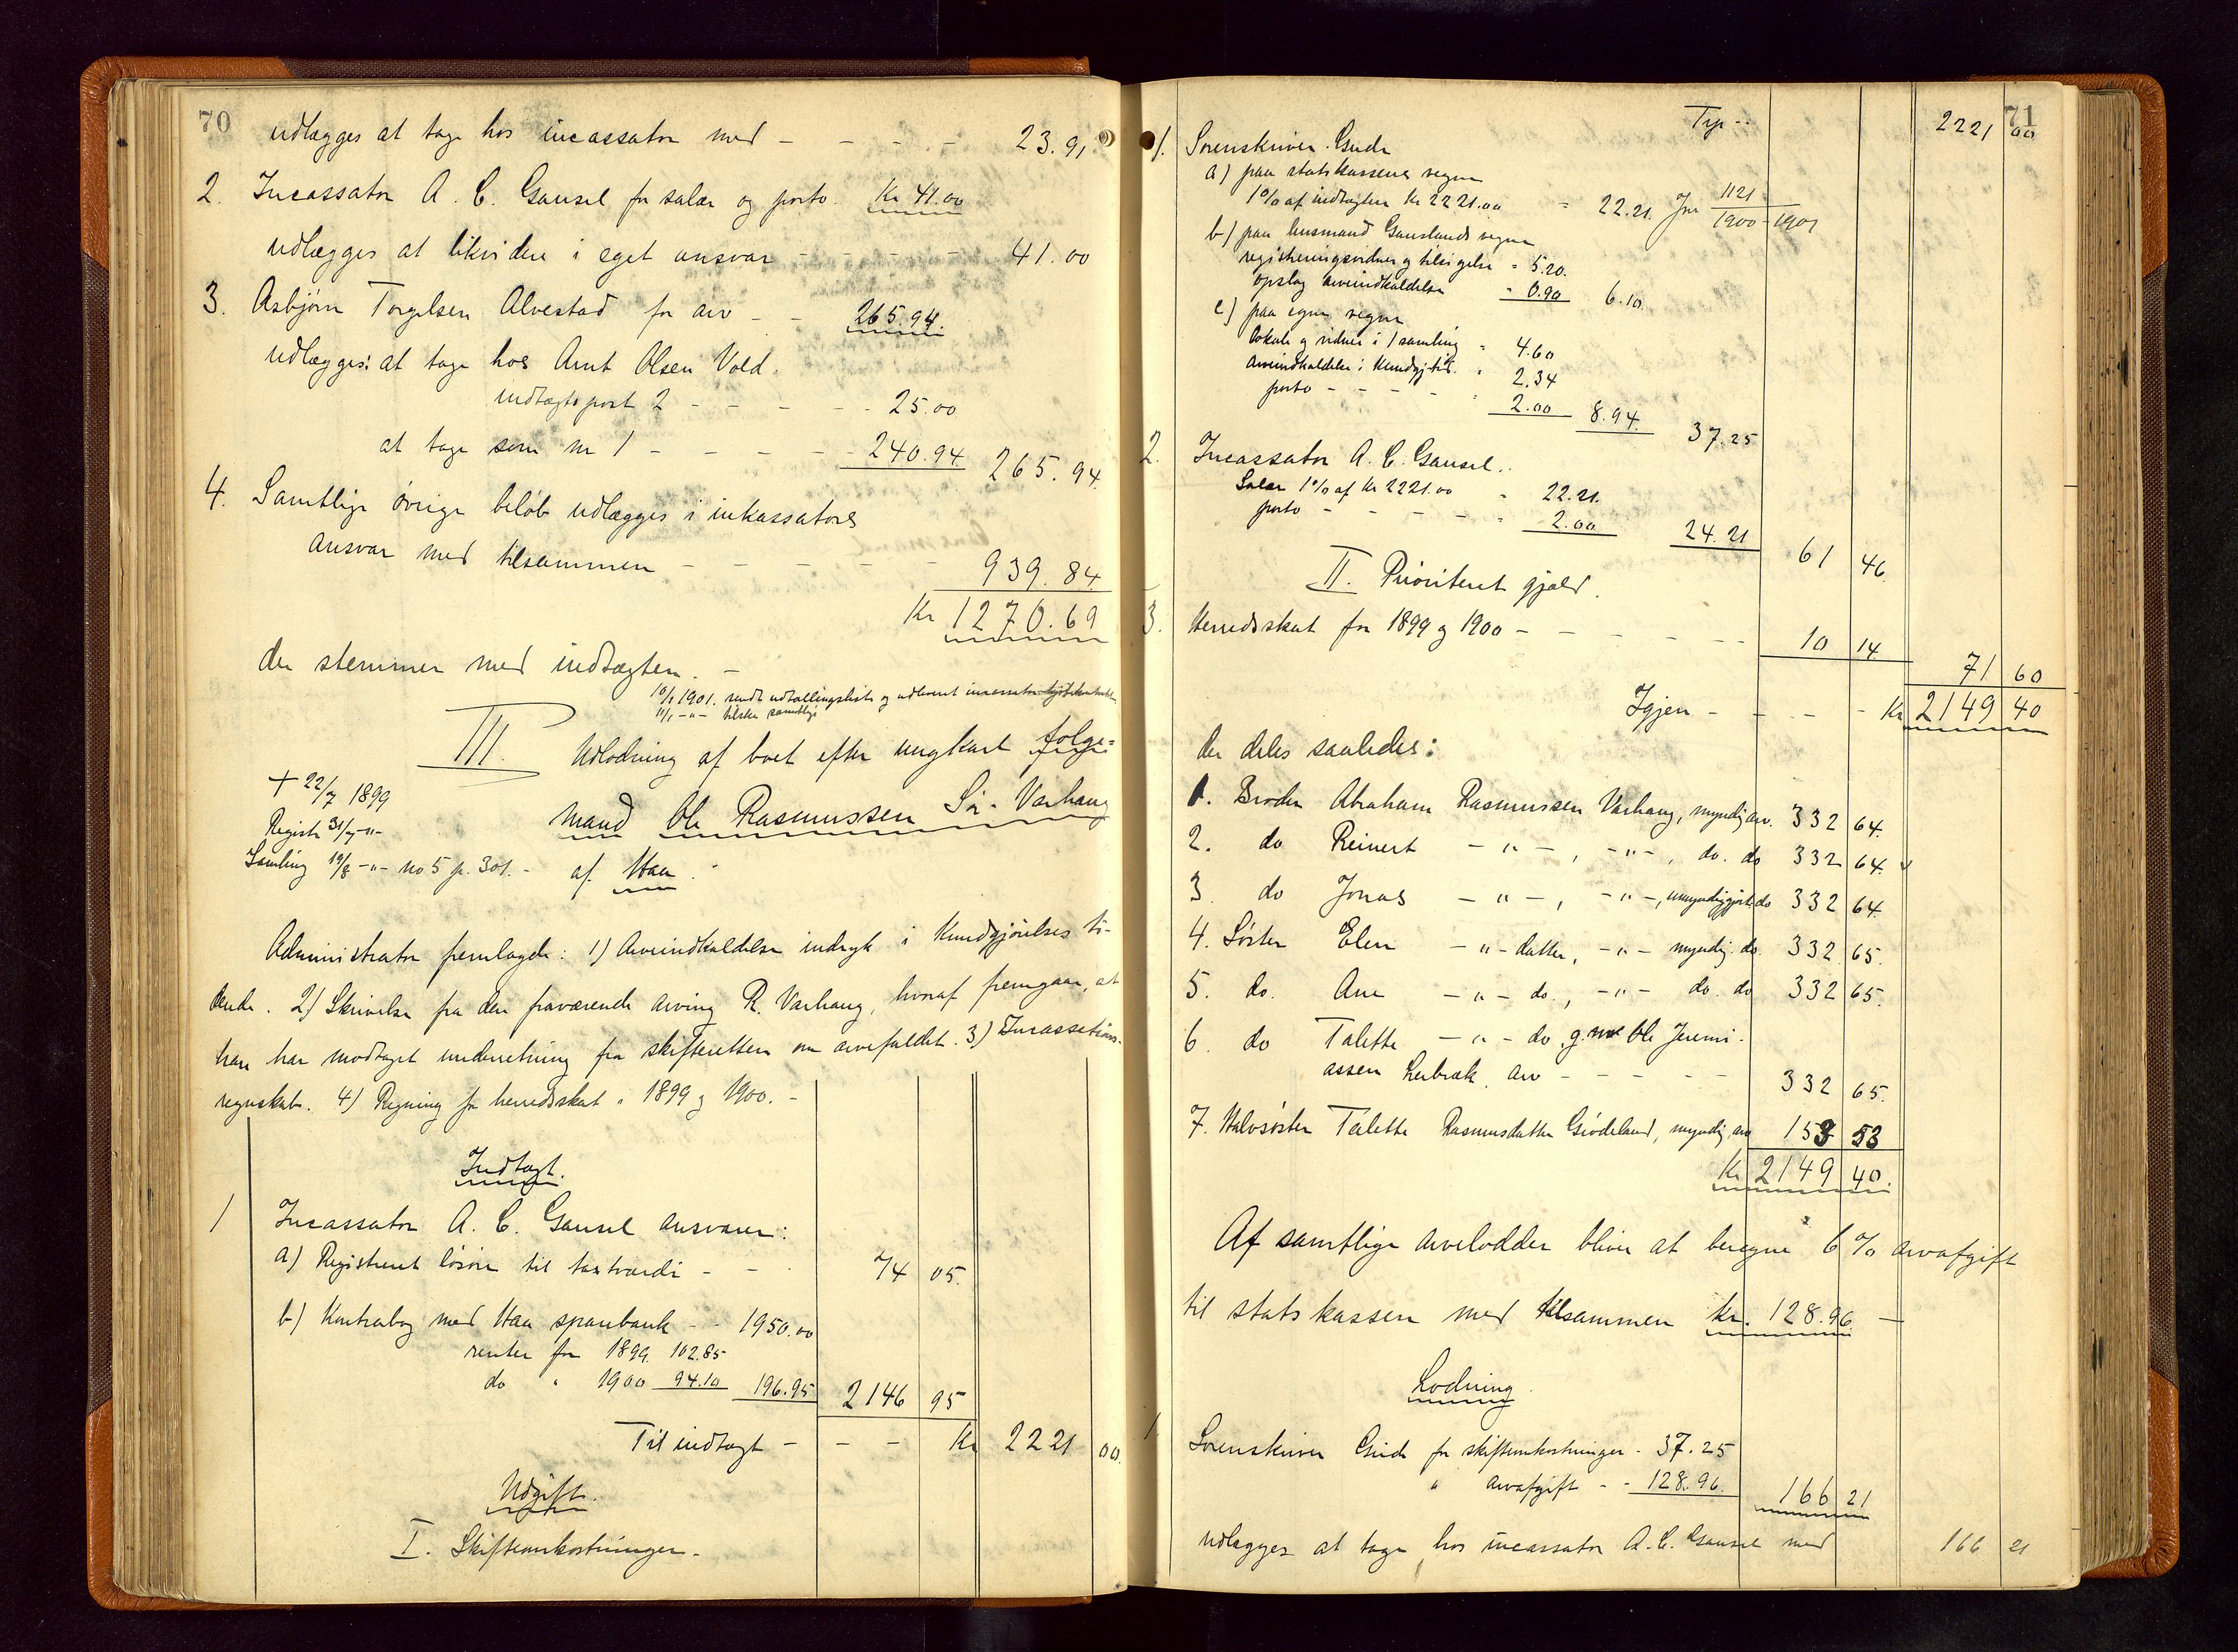 70
udlægges at tage hos incassator med - - - - 23.91
2. Incassator A. C. Gausel for salær og porto. Kr 41.00
udlægges at likvidere i eget ansvar - - - - 41.00
3. Asbjørn Torgilsen Alvestad for arv - - 265.94.
udlægges: at tage hos Arnt Olsen Vold.
indtægtspost 2 - - - - - 25.00
at tage som nr 1 - - - - - 240.94 265.94.
4. Samtlige øvrige beløb udlægges i inkassators
ansvar med tilsammen - - - - - 939.84
Kr 1270.69
der stemmer med indtægten. -
10/1 1901. sendt udtællingsliste og udleveret incassator
11/1 -"- tilske samtlige
III. Udlodning af boet efter ungkarl følge=
mand Ole Rasmussen Sør-Varhaug
af Haa.
+ 22/7 1899
Registr 31/7 -"-
Samling 19/8 -"- no 5 p. 301. -
Administrator fremlagde: 1) Arveindkaldelse indryk i Kundgjørelses ti-
dende. 2) Skrivelse fra den fraværende arving R. Varhaug, hvoraf fremgaar, at
han har modtaget underretning fra skifteretten om arvefaldet. 3) Incassations-
regnskab. 4) Regning for herredsskat i 1899 og 1900. -
Indtægt.
1 Incassator A. C. Gausel ansvarer:
a) Registreret løsøre til taxtværdi - - 74 05.
b) Kontrabog med Haa sparebank - - 1950.00
renter for 1899 102.85
do " 1900 94.10 196.95 2146 95
Til indtægt - - - Kr 2221 00.
Udgift.
I. Skifteomkostninger. -
71
Trp -- 2221 00
1. Sorenskriver Gude
a) paa statskassens vegne
1% af indtægten Kr 2221.00 = 22.21. Jnr 1121 / 1900-1901
b) paa husmand Gauslands vegne
registreringsvidner og tilsigelse = 5.20.
opslag arveindkaldelse - 0.90 6.10.
c) paa egne vegne
lokale og vidner i 1 samling - 4.60
arveindkaldelse i Kundgj.tid. " 2.34
porto - - - - 2.00 8.94. 37.25
2. Incassator A. C. Gausel..
Salær 1% af Kr 2221.00 - 22.21.
porto - - - - - 2.00 24.21 61 46.
II. Prioriteret gjæld.
3. Herredsskat for 1899 og 1900 - - - - - - 10 14
71 60
Igjen - - - - Kr 2149 40
der deles saaledes:
1. Broder Abraham Rasmussen Varhaug, myndig arv. 332 64.
2. do Reinert -"-, -"-, do. do 332 64.
3. do Jonas -"-, -"-, umyndiggjort do 332 64.
4. Søster Elen -"- datter, -"- myndig do. 332 65.
5. do. Ane -"- do., -"- do. do 332 65.
6. do Talette -"- do. g. m. Ole Jeremi-
assen Lerbræk. arv - - - - - 332 65.
7. Halvsøster Talette Rasmusdatter Grødeland, myndig, arv 153 53
Kr 2149 40.
Af samtlige arvelodder bliver at beregne 6 % arvafgift
til statskassen med tilsammen kr. 128.96. -
Lodning.
1 Sorenskriver Gude for skifteomkostninger - 37.25
" arvafgift - - 128.96. 166 21
udlægges at tage hos incassator A. C. Gausel med 166 21